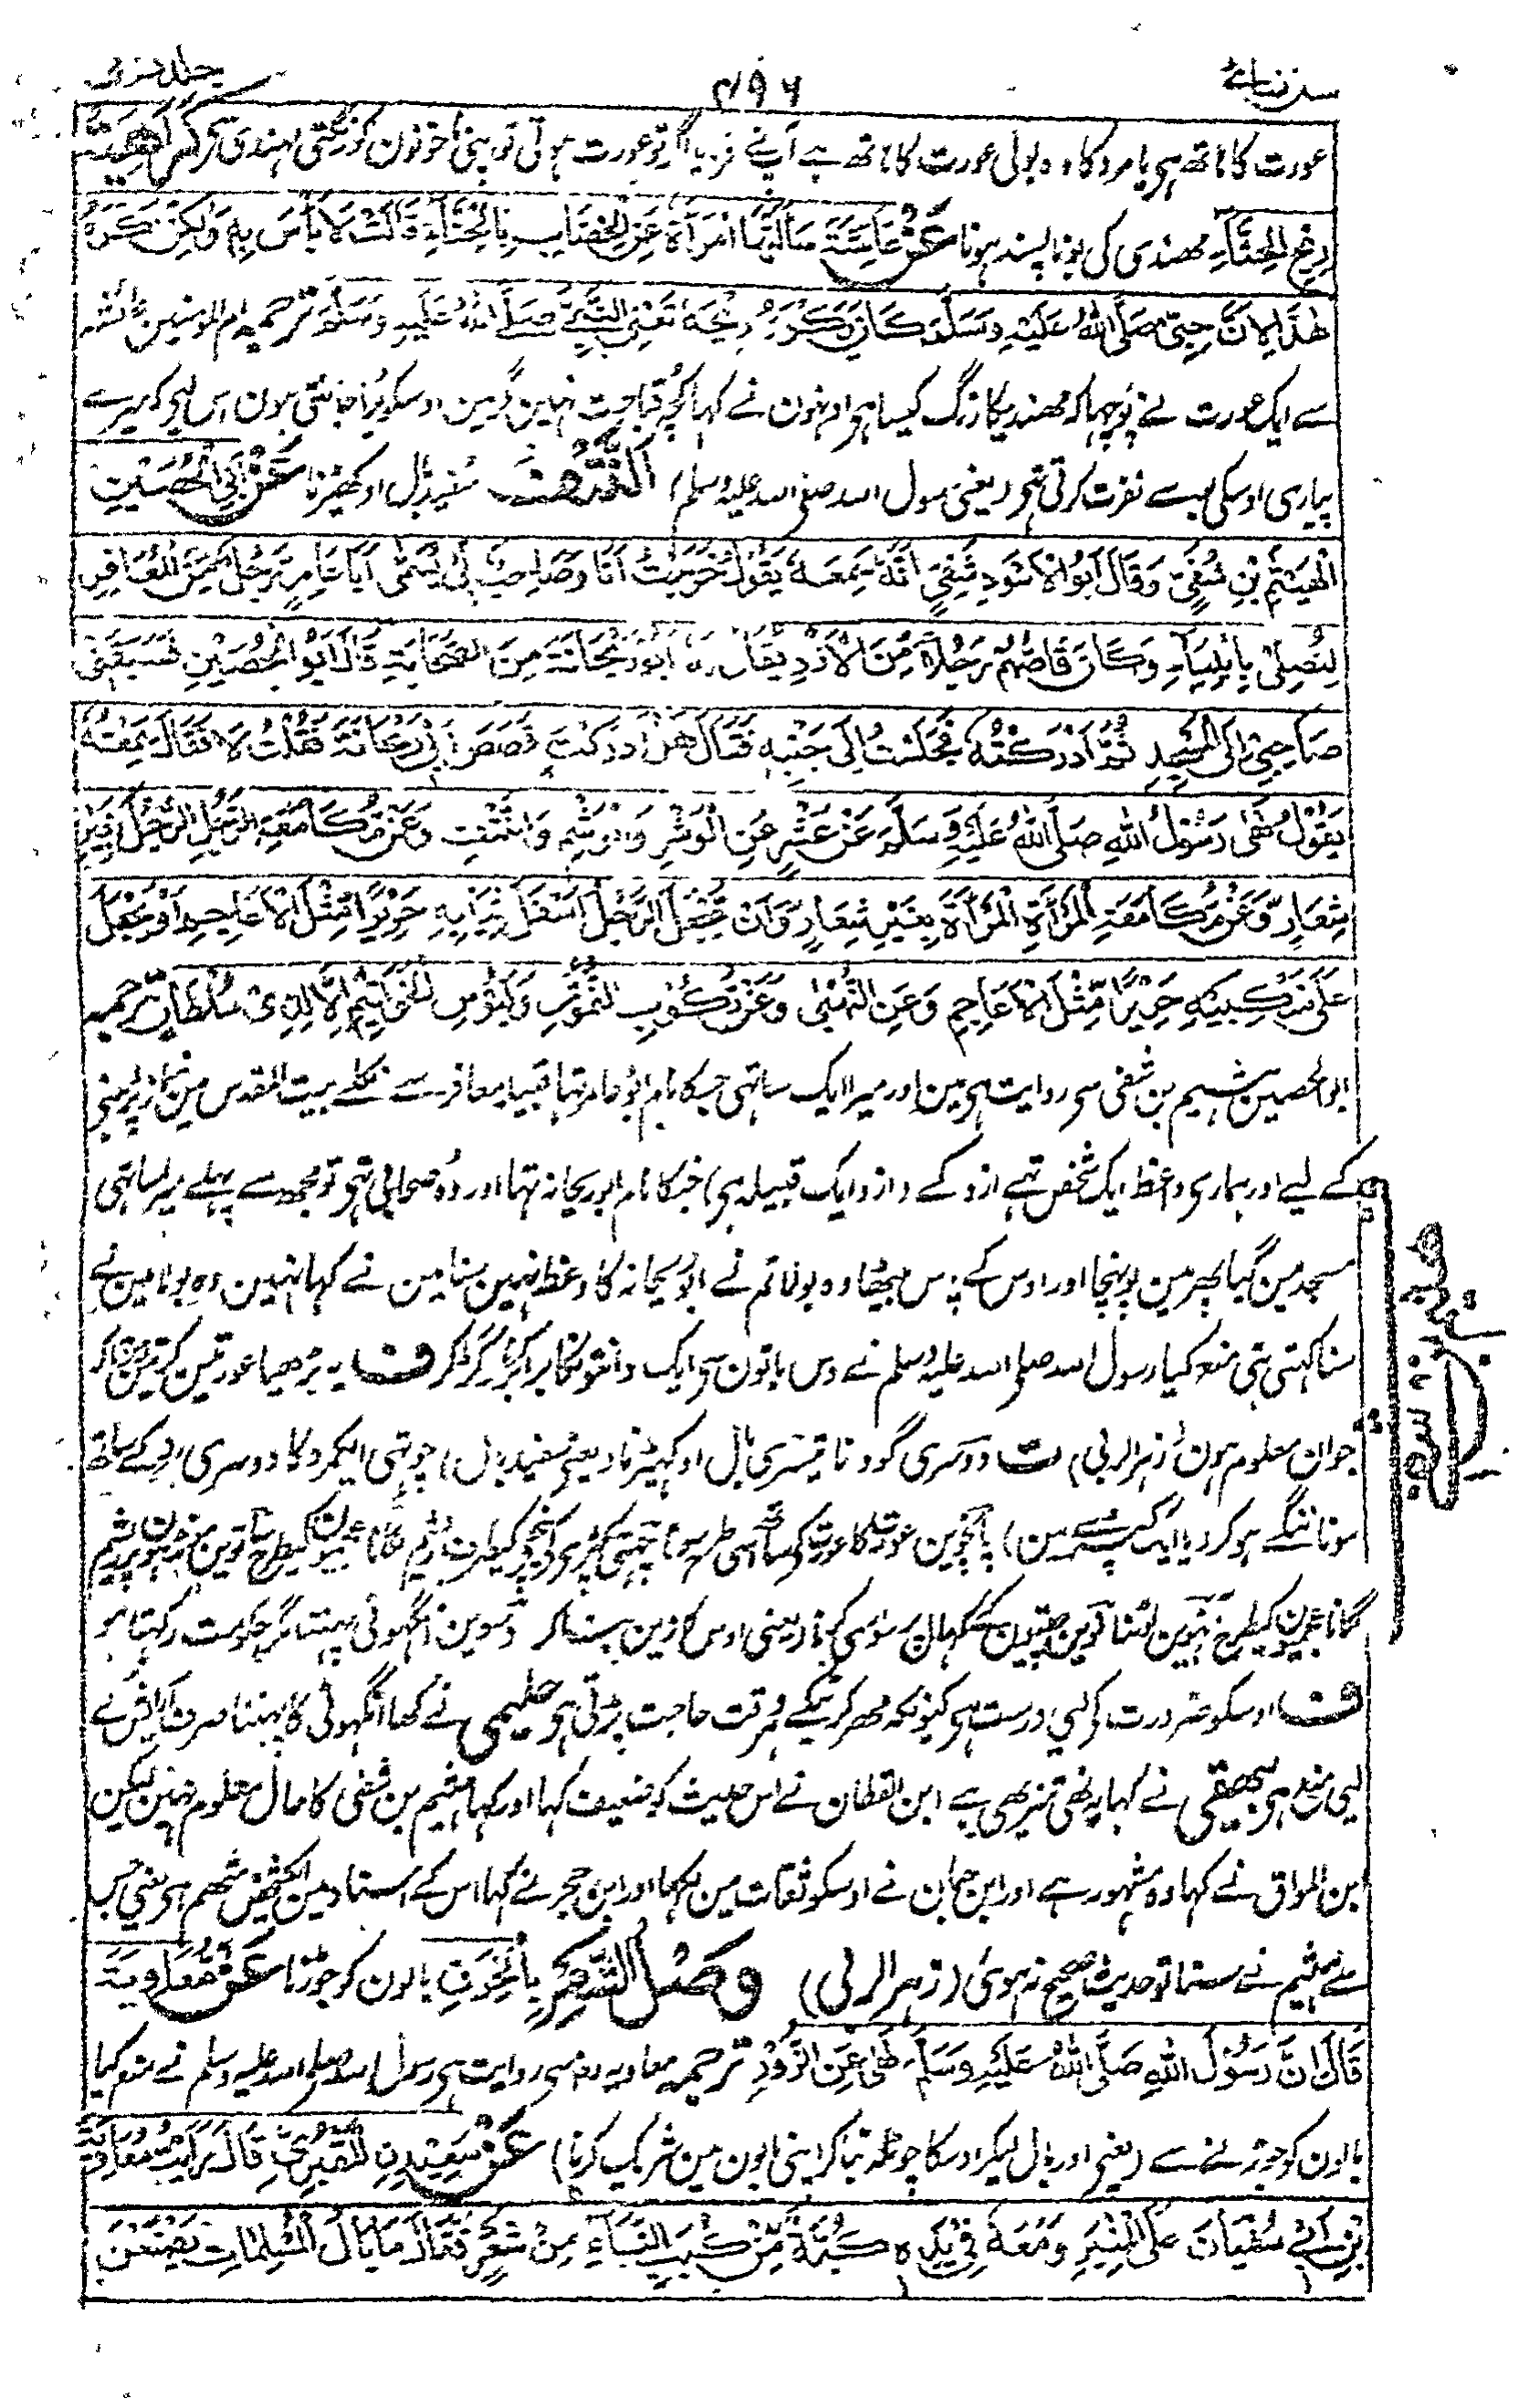 سنن نسائی ۴۹۶ جلد
عورت کا ہاتھ ہی یا مرد کا وہ بولی عورت کا ہاتھ ہے آپنے فرمایا اگر تو عورت ہوتی تو اپنی ناخونون کو رنگتی مہندی سے كَرَاهِيَةُ
رِيْحِ الْحِنَّاءِ مھندی کی بو ناپسند ہونا عَنْ عَائِشَةَ سَأَلَتْهَا امْرَأَةٌ عَنِ الْخِضَابِ بِالْحِنَّاءِ قَالَتْ لَا بَأْسَ بِهٖ وَلٰكِنْ أَكْرَهُ
هٰذَا لِاَنَّ حِبِّيْ صَلَّى اللهُ عَلَيْهِ وَسَلَّمَ كَانَ يَكْرَهُ رِيْحَهٗ تَعْنِي النَّبِيَّ صَلَّى اللهُ عَلَيْهِ وَسَلَّمَ ترجمہ ام المومنین عائشہ
سے ایک عورت نے پوچھا کہ مھندیکا رنگ کیسا ہی اونہون نے کہا کچھ قباحت نہین مگر مین اوسکو برا جانتی ہون اس لیی کہ میرے
پیاری اوسکی بو سے نفرت کرتی تہی (یعنی رسول اللہ صلی اللہ علیہ وسلم) اَلنَّتْفُ سفید بال اوکھیڑنا عَنْ أَبِي الْحُصَيْنِ
الْهَيْثَمِ بْنِ شُفَيٍّ وَقَالَ أَبُو الْأَسْوَدِ شُفَيٍّ أَنَّهٗ سَمِعَهٗ يَقُوْلُ خَرَجْتُ أَنَا وَصَاحِبٌ لِّيْ يُسَمّٰى أَبَا عَامِرٍ رَجُلٌ مِّنَ الْمَعَافِرِ
لِنُصَلِّيَ بِإِيْلِيَاءَ وَكَانَ قَاصُّهُمْ رَجُلًا مِّنَ الْأَزْدِ يُقَالُ لَهٗ أَبُوْ رَيْحَانَةَ مِنَ الصَّحَابَةِ قَالَ أَبُو الْحُصَيْنِ فَسَبَقَنِيْ
صَاحِبِيْ إِلَى الْمَسْجِدِ ثُمَّ أَدْرَكْتُهٗ فَجَلَسْتُ إِلٰى جَنْبِهٖ فَقَالَ هَلْ أَدْرَكْتَ قَصَصَ أَبِيْ رَيْحَانَةَ فَقُلْتُ لَا فَقَالَ سَمِعْتُهٗ
يَقُوْلُ نَهٰى رَسُوْلُ اللهِ صَلَّى اللهُ عَلَيْهِ وَسَلَّمَ عَنْ عَشْرٍ عَنِ الْوَشْرِ وَالْوَشْمِ وَالنَّتْفِ وَعَنْ مُّكَامَعَةِ الرَّجُلِ الرَّجُلَ بِغَيْرِ
شِعَارٍ وَّعَنْ مُّكَامَعَةِ الْمَرْأَةِ الْمَرْأَةَ بِغَيْرِ شِعَارٍ وَّأَنْ يَّجْعَلَ الرَّجُلُ أَسْفَلَ ثِيَابِهٖ حَرِيْرًا مِّثْلَ الْأَعَاجِمِ أَوْ يَجْعَلَ
عَلٰى مَنْكِبَيْهِ حَرِيْرًا مِّثْلَ الْأَعَاجِمِ وَعَنِ النُّهْبٰى وَعَنْ رُّكُوْبِ النُّمُوْرِ وَلُبُوْسِ الْخَوَاتِيْمِ إِلَّا لِذِيْ سُلْطَانٍ ترجمہ
ابو الحصین ہیثم بن شفی سی روایت ہی مین اور میرا ایک ساتھی جسکا نام ابو عامر تہا قبیلہ معافر سے نکلے بیت المقدس مین نماز پڑہنی
کے لیے اور ہماری واعظ ایک شخص تہے ازد کے (ازد ایک قبیلہ ہی) جنکا نام ابو ریحانہ تہا اور وہ صحابی تہی تو مجھ سے پہلے میرا ساتہی
مسجد مین گیا پھر مین پہونچا اور اوس کے پاس بیٹھا وہ بولا تم نے ابو ریحانہ کا وعظ نہین سنا مین نے کہا نہین وہ بولا مین نے
سنا کہتی تہی منع کیا رسول اللہ صلی اللہ علیہ وسلم نے دس باتون سی ایک دانتونکا برابر کرنا رگڑ کر ف یہ بڑھیا عورتین کرتی ہین تا کہ
جوان معلوم ہون (زہر الربی) ت دوسری گودنا تیسری بال اوکھیڑنا (یعنی سفید بال) چوتہی ایک مرد کا دوسری مرد کے ساتھ
سونا ننگے ہو کر (یا ایک کپڑے مین) پانچوین عورت کا عورت کے ساتھ اسی طرح سونا چھٹی کپڑی کے نیچی کیطرف ریشم لگانا عجمیون کیطرح ساتوین مونڈہون پر ریشم
لگانا عجمیون کیطرح آٹھوین لوٹنا نوین چیتون کی کھال پر سواری کرنا (یعنی اوس کا زین بنا کر) دسوین انگہوٹی پہننا مگر جو حکومت رکہتا ہو
ف اوسکو ضرورت کے لیی درست ہی کیونکہ مھر کرنیکے وقت حاجت پڑتی ہی حلیمی نے کہا انگہوٹی کا پہننا صرف آرایش کے
لیی منع ہی بیہقی نے کہا یہ نھی تنزیہی ہے ابن القطان نے اس حدیث کو ضعیف کہا اور کہا ہیثم بن شفی کا حال معلوم نہین لیکن
ابن المواق نے کہا وہ مشہور ہے اور ابن حبان نے اوسکو ثقات مین لکہا اور ابن حجر نے کہا اس کے اسناد مین ایک شخص مبہم ہی یعنی جس
سے ہیثم نے سنا تو حدیث صحیح نہ ہوئی (زہر الربی) وَصْلُ الشَّعْرِ بِالْخِرَقِ بالون کو جوڑنا عَنْ مُعَاوِيَةَ
قَالَ إِنَّ رَسُوْلَ اللهِ صَلَّى اللهُ عَلَيْهِ وَسَلَّمَ نَهٰى عَنِ الزُّوْرِ ترجمہ معاویہ رض سی روایت ہی رسول اللہ صلی اللہ علیہ وسلم نے منع کیا
بالون کو جوڑنے سے (یعنی اور بال لیکر اوسکا چوٹلہ بنا کر اپنی بالون مین شریک کرنا) عَنْ سَعِيْدِنِ الْمَقْبُرِيِّ قَالَ رَأَيْتُ مُعَاوِيَةَ
بْنَ أَبِيْ سُفْيَانَ عَلَى الْمِنْبَرِ وَمَعَهٗ فِيْ يَدِهٖ كُبَّةٌ مِّنْ كُبَبِ النِّسَاءِ مِنْ شَعْرٍ فَقَالَ مَا بَالُ الْمُسْلِمَاتِ يَصْنَعْنَ